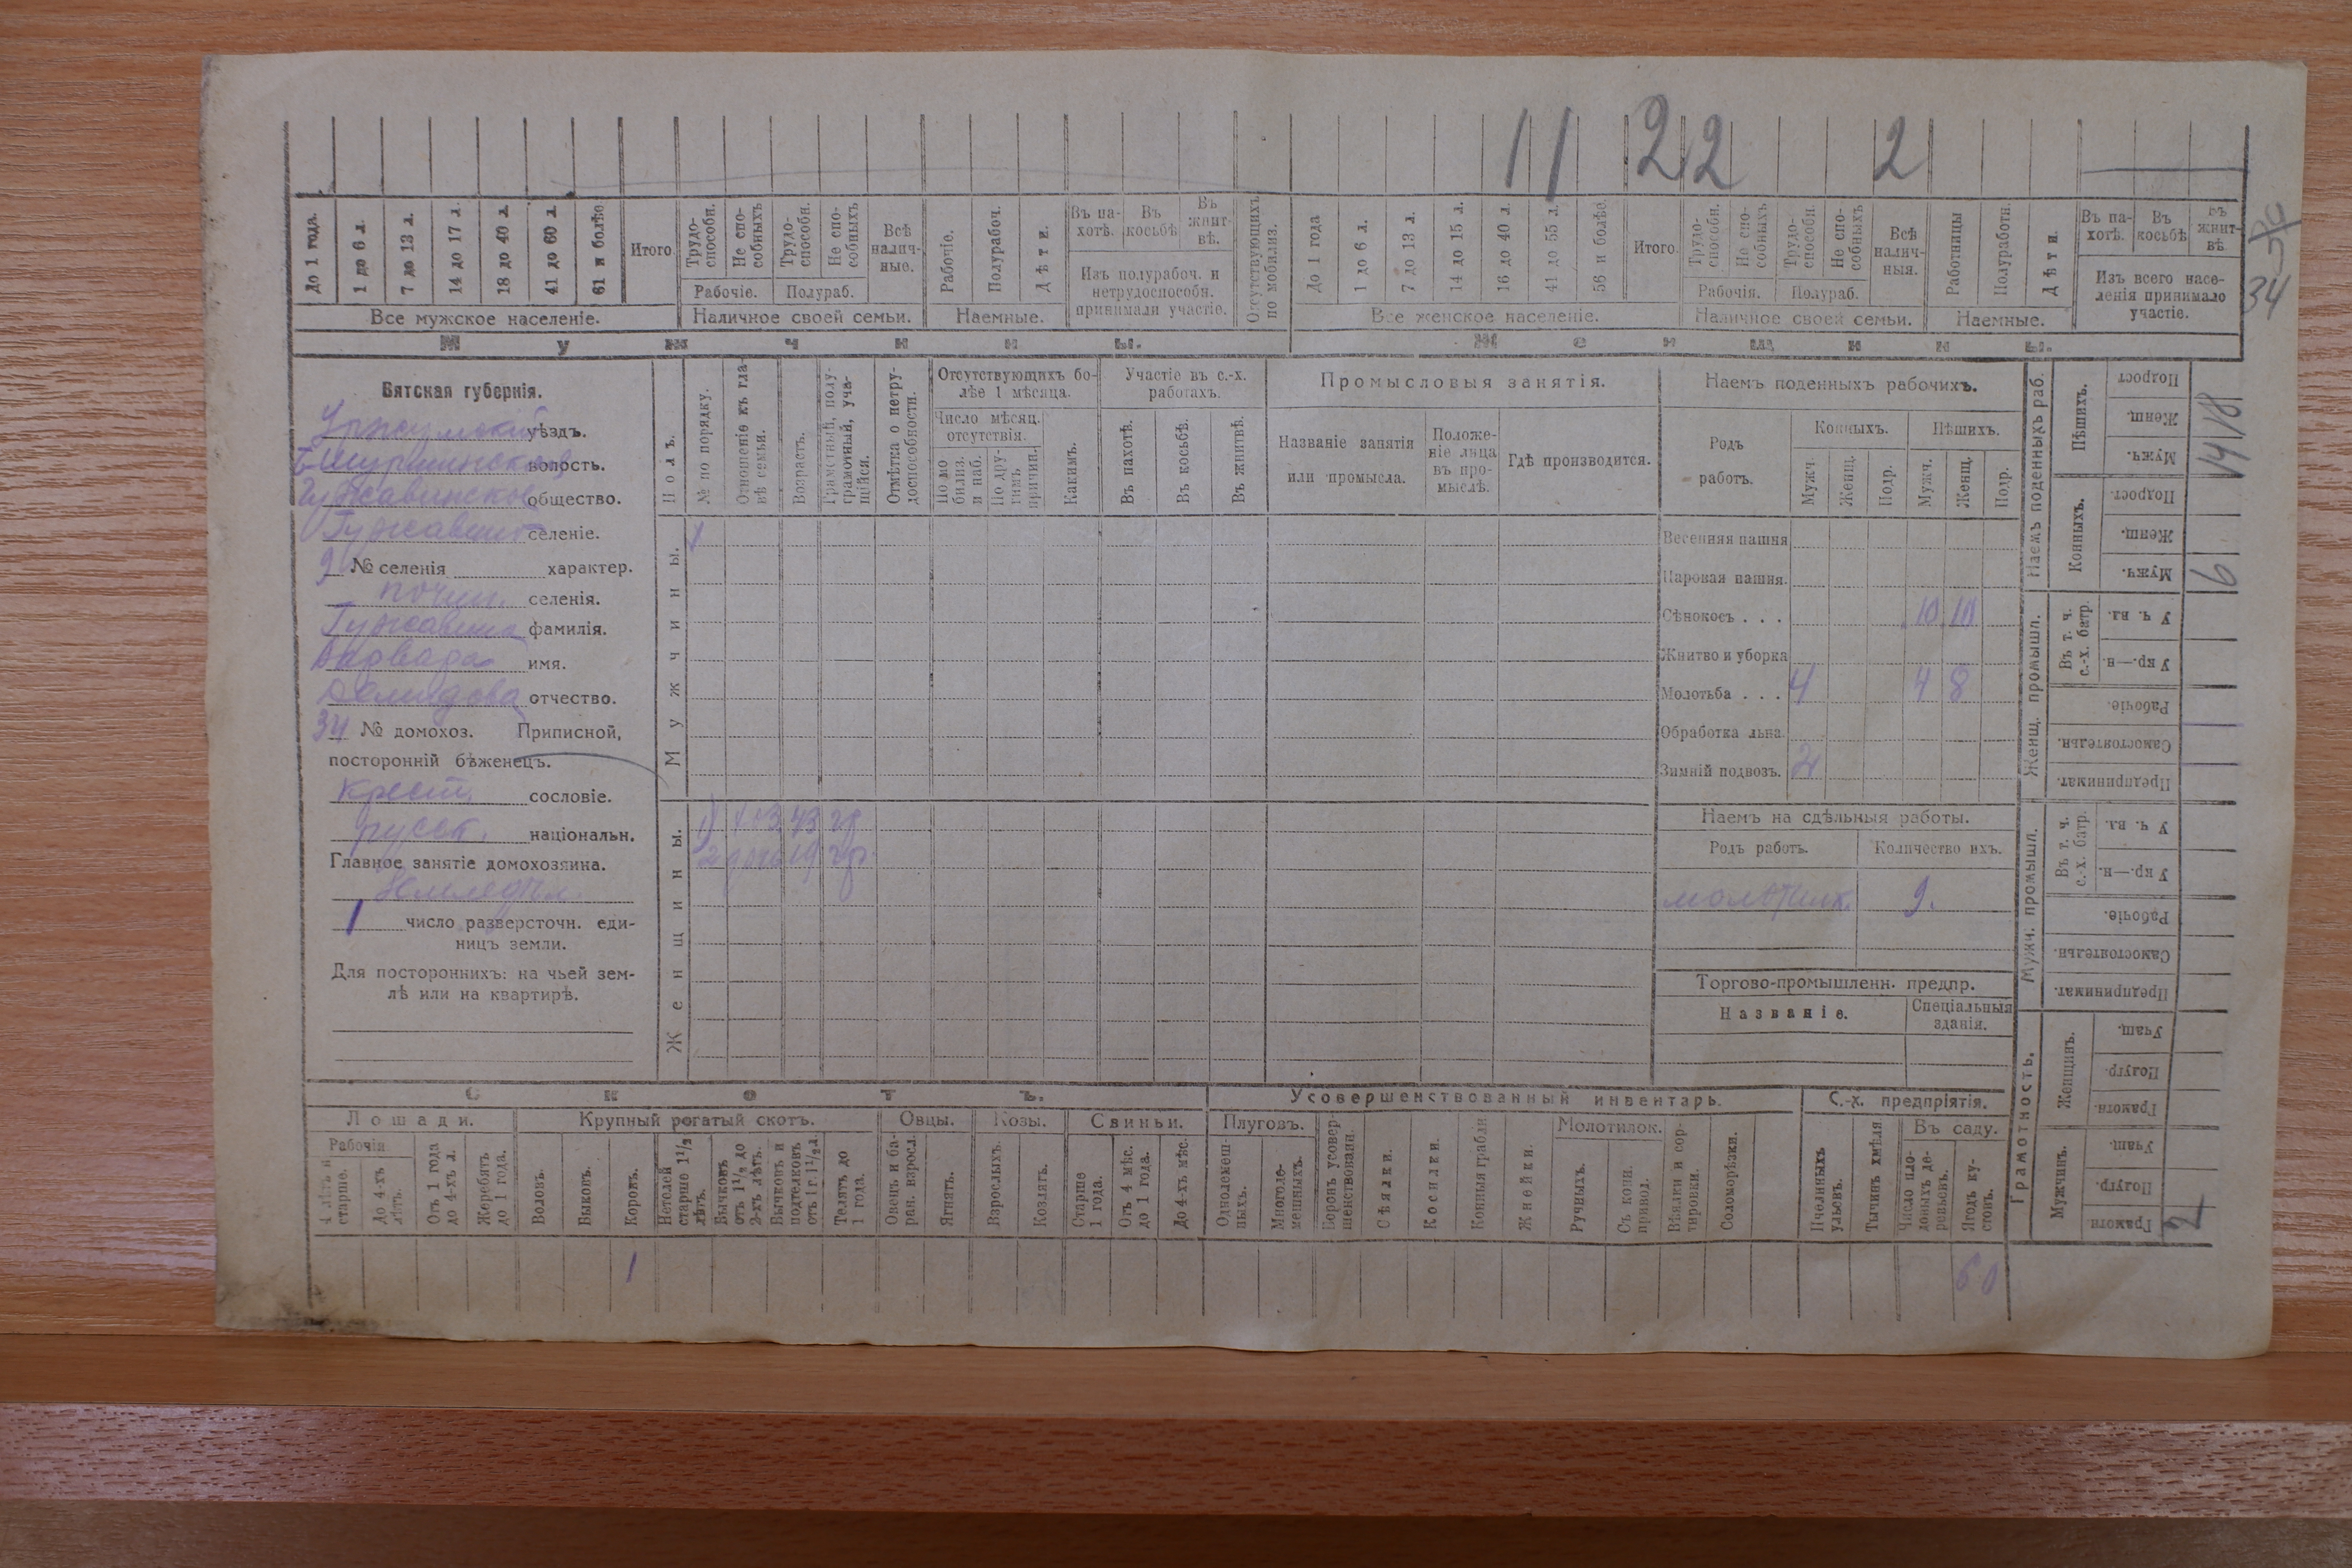 11 22 2
До 1 года.
1 до 6 л.
7 до 13 л.
14 до 17 л.
18 до 40 л.
41 до 60 л.
61 и болѣе
Итого
Трудо-способн.
Не спо-собныхъ
Трудо-способн.
Не спо-собныхъ
Рабочіе.
Полураб.
Всѣ налич-ные.
Рабочіе.
Полурабоч.
Дѣти.
Въ па-хотѣ.
Въ косьбѣ
Въ жнит-вѣ.
Изъ полурабоч. и нетрудоспособн. принимали участіе.
Отсутствующихъ по мобилиз.
До 1 года
1 до 6 л.
7 до 13 л.
14 до 15 л.
16 до 40 л.
41 до 55 л.
56 и болѣе.
Итого.
Трудо-способн.
Не спо-собныхъ
Трудо-способн.
Не спо-собныхъ
Рабочія.
Полураб.
Всѣ налич-ныя.
Работницы
Полуработн.
Дѣти.
Въ па-хотѣ.
Въ косьбѣ
Въ жнит-вѣ.
Изъ всего насе-ленія принимало участіе.
34
Все мужское населеніе.
Наличное своей семьи.
Наемные.
Все женское населеніе.
Наличное своей семьи.
Наемные.
Мужчины.
Женщины.
Вятская губернія.
Уржумскій уѣздъ.
волость.
Гужавинское общество.
Гужавино селеніе.
9 № селенія характер.
почин. селенія.
Гужавина фамилія.
Варвара имя.
Демидова отчество.
34 № домохоз. Приписной,
посторонній бѣженецъ.
крест. сословіе.
русск. національн.
Главное занятіе домохозяина.
Земледѣл.
1 число разверсточн. еди-
ницъ земли.
Для постороннихъ: на чьей зем-
лѣ или на квартирѣ.
Полъ.
№ по порядку.
Отношеніе къ гла-вѣ семьи.
Возрастъ.
Грамотный, полу-грамотный, уча-щійся.
Отмѣтка о нетру-доспособности.
Отсутствующихъ бо-лѣе 1 мѣсяца.
Число мѣсяц. отсутствія.
По мо-билиз. и наб.
По дру-гимъ причин.
Какимъ.
Участіе въ с.-х. работахъ.
Въ пахотѣ.
Въ косьбѣ.
Въ жнитвѣ.
Промысловыя занятія.
Названіе занятія или промысла.
Положе-ніе лица въ про-мыслѣ.
Гдѣ производится.
Мужчины.
1
Женщины.
1 хоз. 43 гр
2 дочь 19 гр.
Наемъ поденныхъ рабочихъ.
Родъ работъ.
Конныхъ.
Пѣшихъ.
Мужч.
Женщ.
Подр.
Мужч.
Женщ.
Подр.
Весенняя пашня
Паровая пашня.
Сѣнокосъ . . . 10 10
Жнитво и уборка
Молотьба . . . 4 4 8
Обработка льна.
Зимній подвозъ. 2
Наемъ на сдѣльныя работы.
Родъ работъ.
Количество ихъ.
молотилк. 9.
Торгово-промышленн. предпр.
Названіе.
Спеціальныя зданія.
Наемъ поденныхъ раб.
Пѣшихъ.
Подрост
Женщ.
Мужч.
18
14
Конныхъ.
Подрост.
Женщ.
Мужч.
6
Женщ. промышл.
Въ т. ч. с.-х. батр.
У ч. вл.
У кр.—н.
Рабочіе.
Самостоятельн.
Предпринимат.
Мужч. промышл.
Въ т. ч. с.-х. батр.
У ч. вл.
У кр.—н.
Рабочіе.
Самостоятельн.
Предпринимат.
Грамотность.
Женщинъ.
Учащ.
Полугр.
Грамотн.
Мужчинъ.
Учащ.
Полугр.
Грамотн
2
Скотъ.
Лошади.
Рабочія
4 лѣтъ и старше.
До 4-хъ лѣтъ.
Отъ 1 года до 4-хъ л.
Жеребятъ до 1 года.
Крупный рогатый скотъ.
Воловъ.
Быковъ.
Коровъ.
Нетелей старше 1½ лѣтъ.
Бычковъ отъ 1½ до 2-хъ лѣтъ.
Бычковъ и подтелковъ отъ 1 г. 1½ л.
Телятъ до 1 года.
Овцы.
Овецъ и ба-ран. взросл.
Ягнятъ.
Козы.
Взрослыхъ.
Козлятъ.
Свиньи.
Старше 1 года.
Отъ 4 мѣс. до 1 года.
До 4-хъ мѣс.
Усовершенствованный инвентарь.
Плуговъ.
Однолемеш-ныхъ.
Многоле-мешныхъ.
Боронъ усовер-шенствованн.
Сѣялки.
Косилки.
Конныя грабли
Жнейки.
Молотилок.
Ручныхъ.
Съ конн. привод.
Вѣялки и сор-тировки.
Соломорѣзки.
С.-х. предпріятія.
Пчелиныхъ ульевъ.
Тычинъ хмѣля
Въ саду.
Число пло-довыхъ де-ревьевъ.
Ягодн ку-стовъ.
1
60